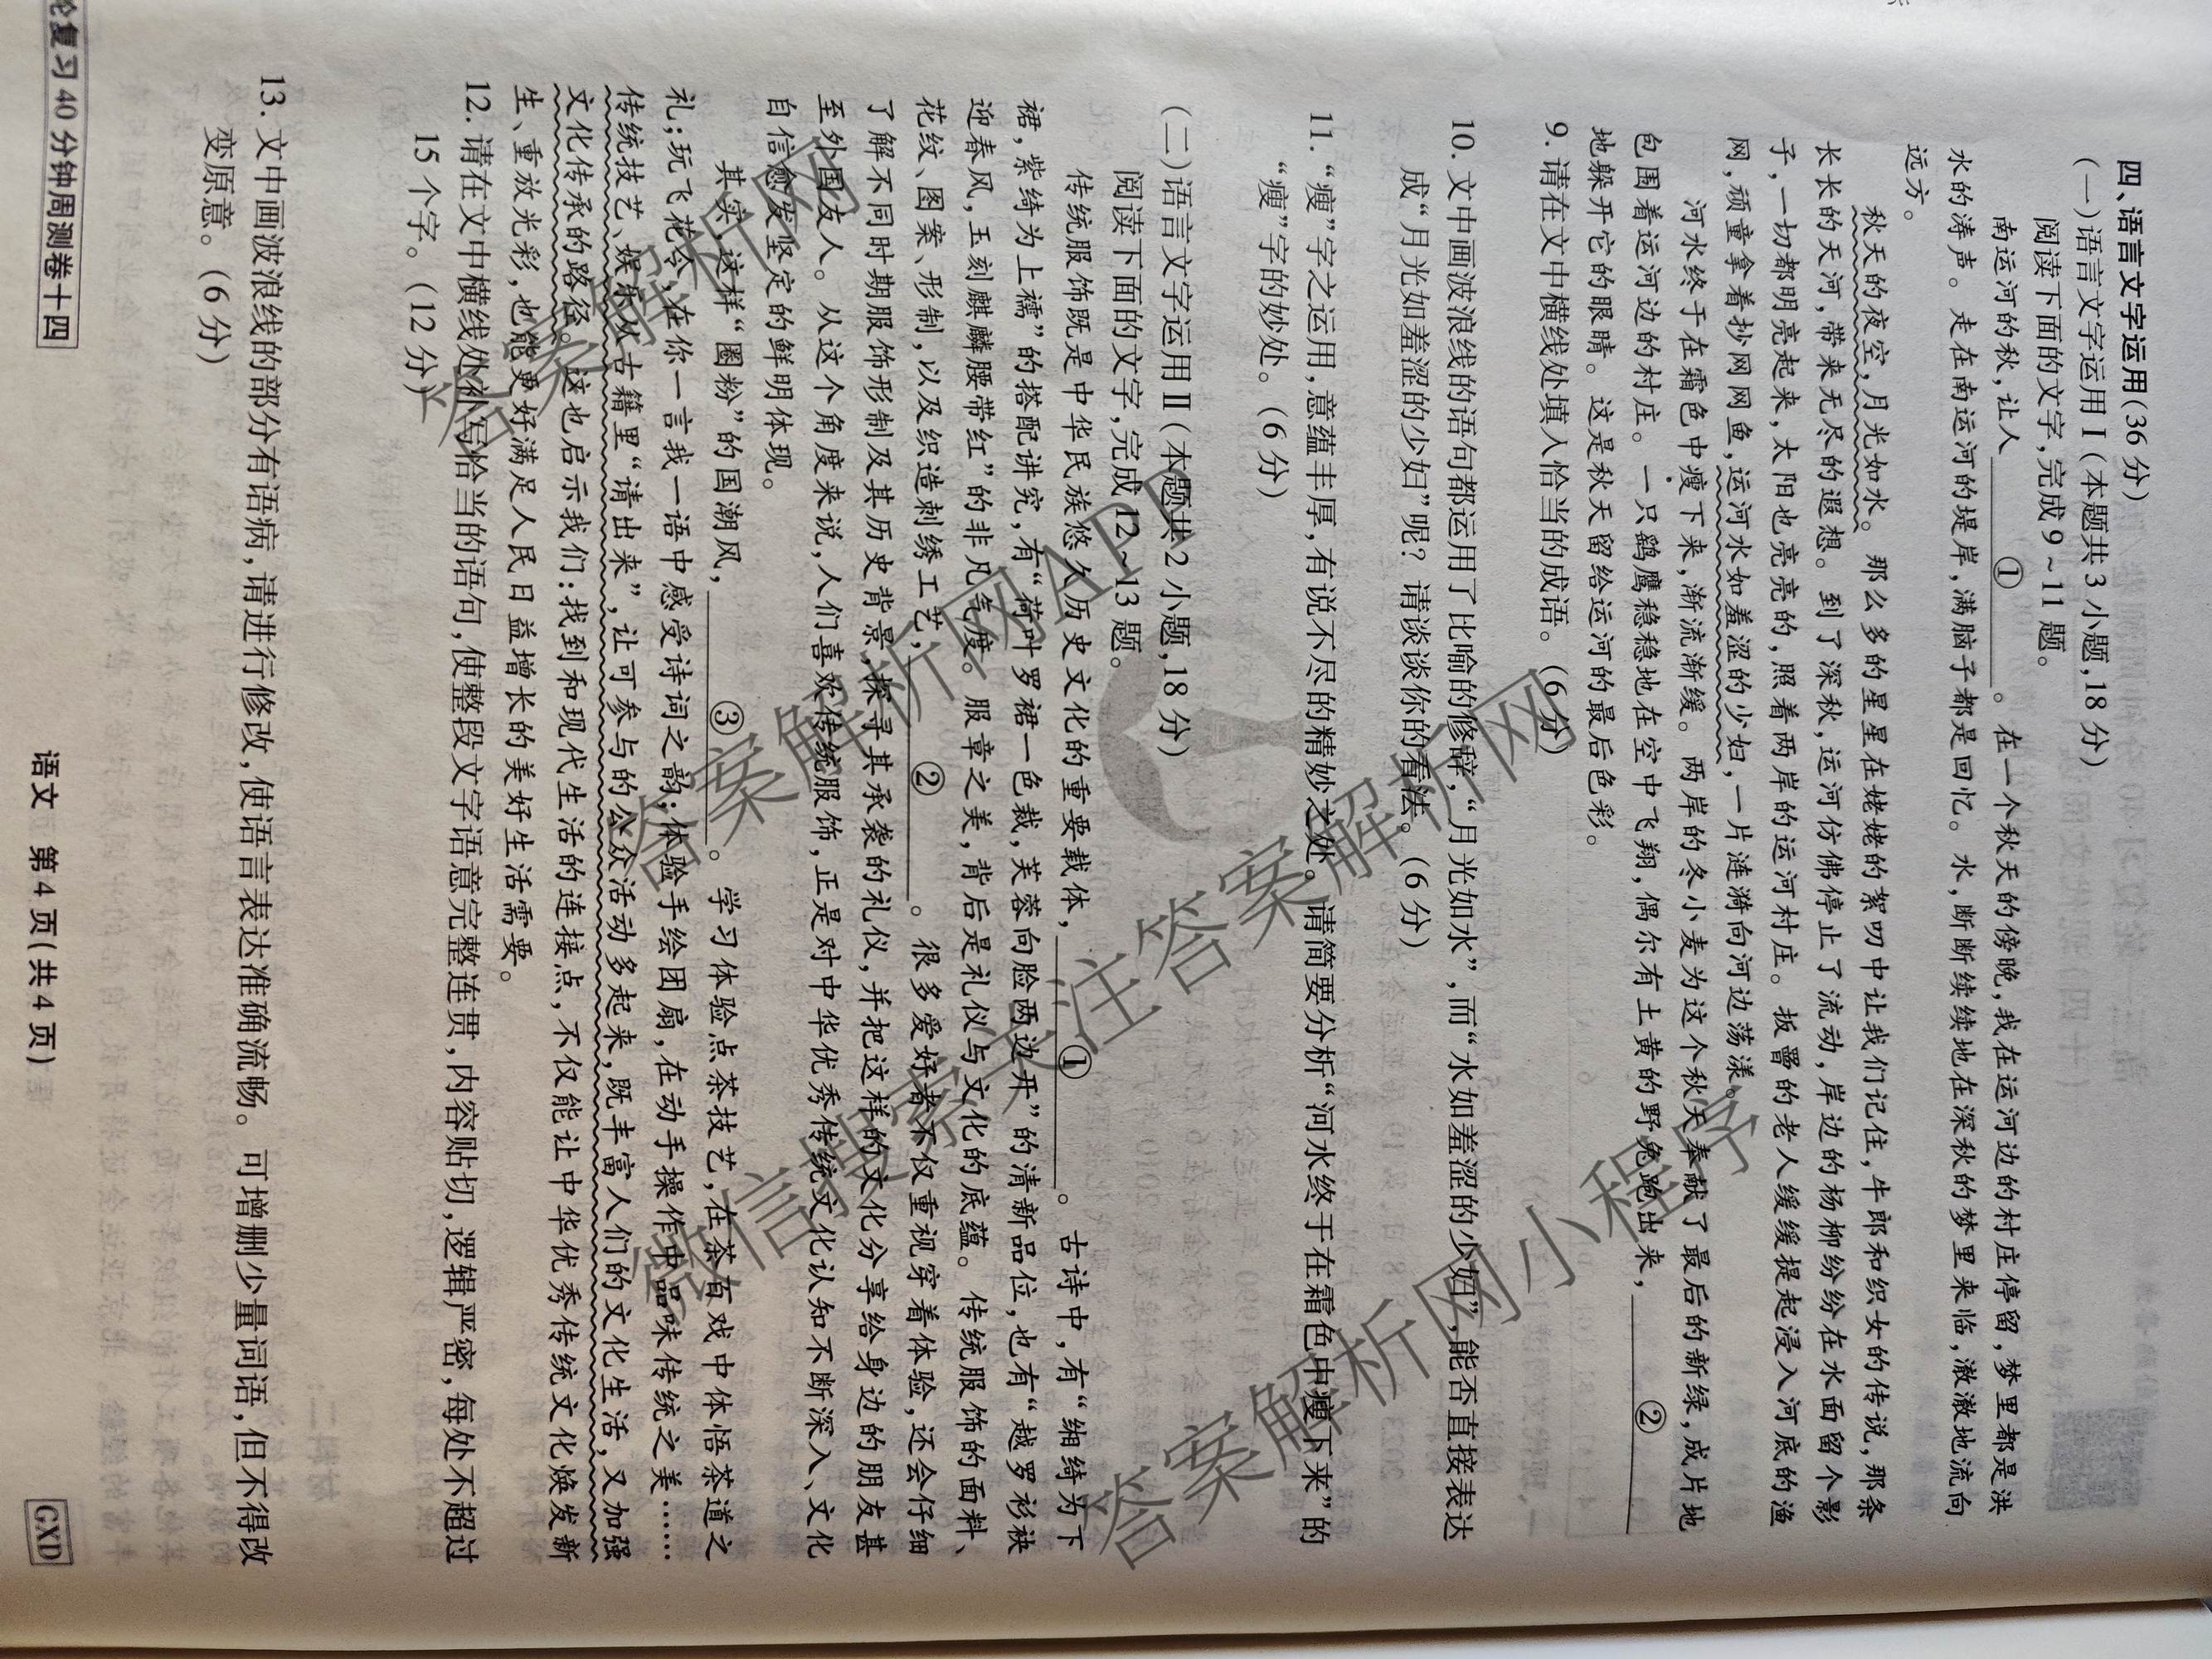 四、语言文字运用(36分)
(一)语言文字运用Ⅰ(本题共3小题,18分)
阅读下面的文字,完成9~11题。
南运河的秋,让人 ① 。在一个秋天的傍晚,我在运河边的村庄停留,梦里都是洪
水的涛声。走在南运河的堤岸,满脑子都是回忆。水,断断续续地在深秋的梦里来临,澈澈地流向
远方。
秋天的夜空,月光如水。那么多的星星在姥姥的絮叨中让我们记住,牛郎和织女的传说,那条
长长的天河,带来无尽的遐想。到了深秋,运河仿佛停止了流动,岸边的杨柳纷纷在水面留个影
子,一切都明亮起来,太阳也亮亮的,照着两岸的运河村庄。扳罾的老人缓缓提起浸入河底的渔
网,顽童拿着抄网网鱼,运河水如羞涩的少妇,一片涟漪向河边荡漾。
河水终于在霜色中瘦下来,渐流渐缓。两岸的冬小麦为这个秋天奉献了最后的新绿,成片地
包围着运河边的村庄。一只鹞鹰稳稳地在空中飞翔,偶尔有土黄的野兔跑出来, ②
地躲开它的眼睛。这是秋天留给运河的最后色彩。
9. 请在文中横线处填入恰当的成语。(6分)
10. 文中画波浪线的语句都运用了比喻的修辞,“月光如水”,而“水如羞涩的少妇”,能否直接表达
成“月光如羞涩的少妇”呢?请谈谈你的看法。(6分)
11. “瘦”字之运用,意蕴丰厚,有说不尽的精妙之处。请简要分析“河水终于在霜色中瘦下来”的
“瘦”字的妙处。(6分)
(二)语言文字运用Ⅱ(本题共2小题,18分)
阅读下面的文字,完成12~13题。
传统服饰既是中华民族悠久历史文化的重要载体, ① 。古诗中,有“缃绮为下
裙,紫绮为上襦”的搭配讲究,有“荷叶罗裙一色裁,芙蓉向脸两边开”的清新品位,也有“越罗衫袂
迎春风,玉刻麒麟腰带红”的非凡气度。服章之美,背后是礼仪与文化的底蕴。传统服饰的面料、
花纹、图案、形制,以及织造刺绣工艺, ② 。很多爱好者不仅重视穿着体验,还会仔细
了解不同时期服饰形制及其历史背景,探寻其承袭的礼仪,并把这样的文化分享给身边的朋友甚
至外国友人。从这个角度来说,人们喜欢传统服饰,正是对中华优秀传统文化认知不断深入、文化
自信愈发坚定的鲜明体现。
其实,这样“圈粉”的国潮风, ③ 。学习体验点茶技艺,在茶百戏中体悟茶道之
礼;玩飞花令,在你一言我一语中感受诗词之韵;体验手绘团扇,在动手操作中品味传统之美……
传统技艺、娱乐从古籍里“请出来”,让可参与的公众活动多起来,既丰富人们的文化生活,又加强
文化传承的路径。这也启示我们:找到和现代生活的连接点,不仅能让中华优秀传统文化焕发新
生、重放光彩,也能更好满足人民日益增长的美好生活需要。
12. 请在文中横线处补写恰当的语句,使整段文字语意完整连贯,内容贴切,逻辑严密,每处不超过
15个字。(12分)
13. 文中画波浪线的部分有语病,请进行修改,使语言表达准确流畅。可增删少量词语,但不得改
变原意。(6分)
轮复习40分钟周测卷十四
语文 第4页(共4页)
GXD
答案解析网
答案解析网APP
微信搜索关注答案解析网
答案解析网小程序